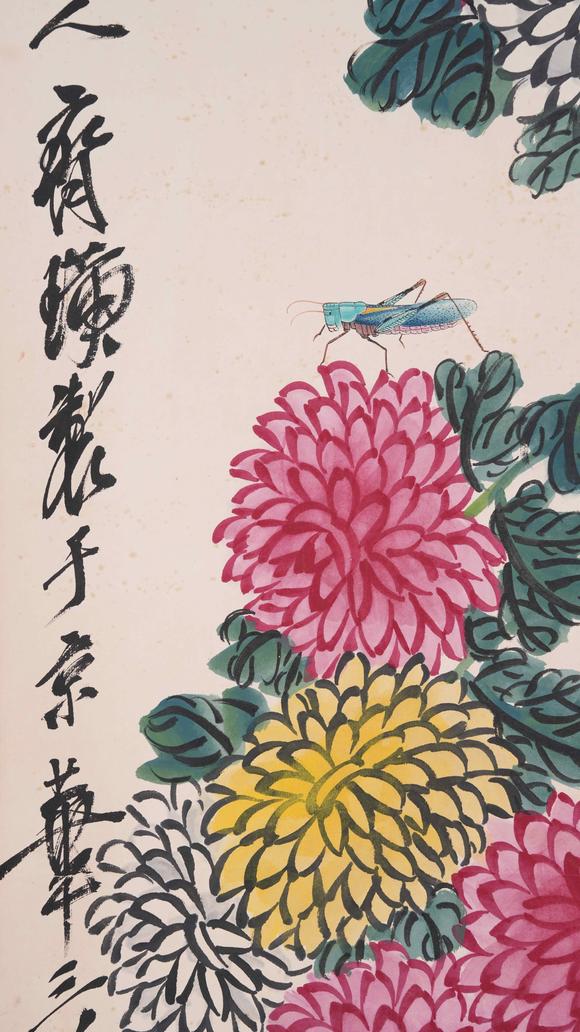 人齊璜製于京華三